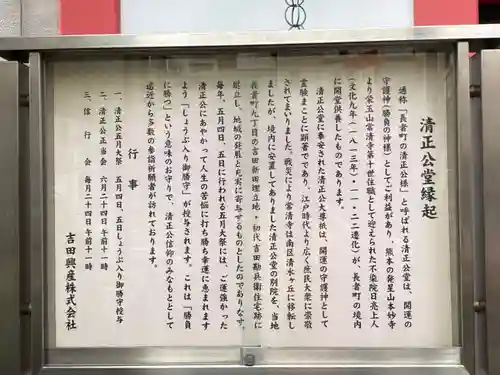 清正公堂縁起
通称「長者町の清正公様」と呼ばれる清正公堂は、開運の
守護神(勝負の神様)としてご利益があり、熊本の発星山本妙寺
より栄玉山常清寺第十世住職として迎えられた不染院日亮上人
(文化九年(一八一三年)・一・二二遷化)が、長者町の境内
に開堂供養したものであります。
清正公堂に奉安された清正公大尊祇は、開運の守護神として
霊験まことに顕著でであり、江戸時代より広く庶民大衆に崇敬
されてまいりました。戦災により常清寺は南区清水ヶ丘に移転し
ましたが、境内に安置してありました清正公堂の別院を、当地
長者町九丁目の吉田新田埋立地・初代吉田勘兵衛住宅跡に
建立し、地域の発展と充実に寄与せるものとしたのでありなす。
毎年、五月四日、五日に行われる五月大祭には、ご運強かった
清正公にあやかって人生の苦悩に打ち勝ち幸運に恵まれます
よう「しょうぶ入り御勝守」が授与されます。これは「勝負
に勝つ」という意味のお守りで、清正公信仰のみなもととして
遠近から多数の参詣祈願者が訪れております。
行事
一、清正公五月大祭 五月四日、五日しょうぶ入り御勝守授与
二、清正公正当会 六月二十四日 午前十一時
三、信行会 毎月二十四日 午前十一時
吉田興産株式会社